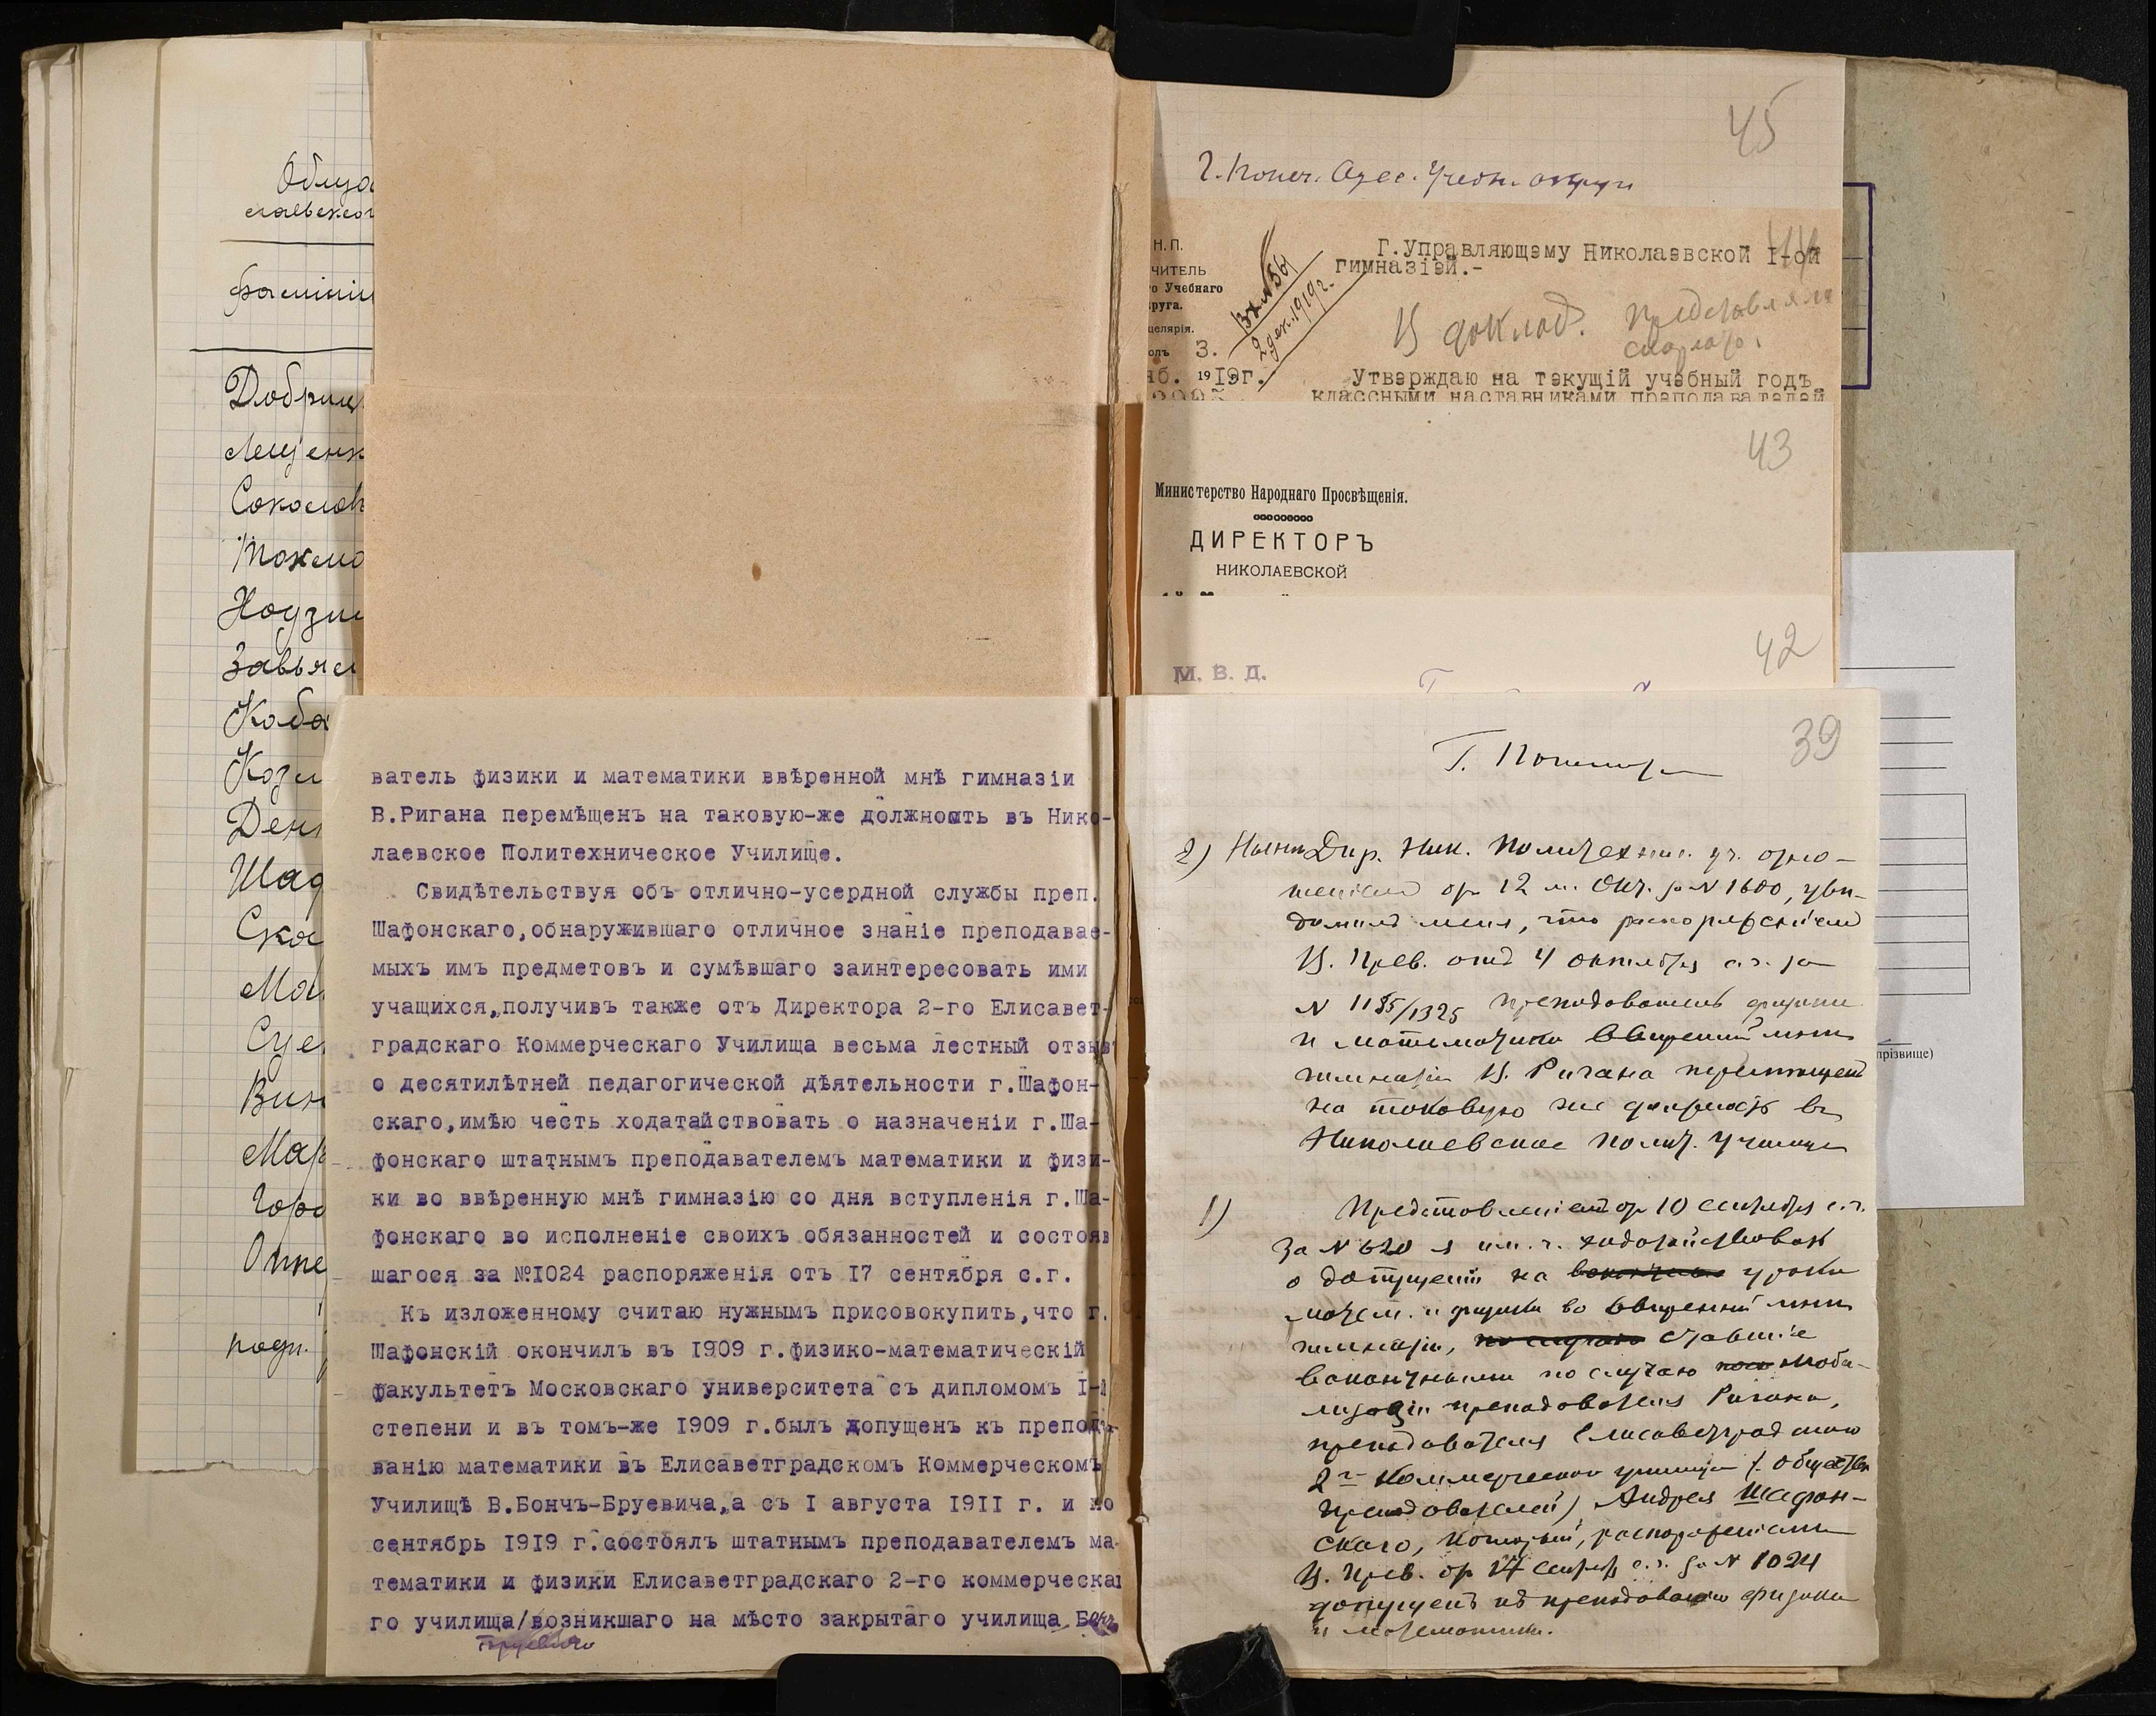 Добрин
Лещенк
Соколов
Козл
подп.
ватель физики и математики ввѣренной мнѣ гимназіи
В.Ригана перемѣщенъ на таковую-же должность въ Нико-
лаевское Политехническое Училище.
Свидѣтельствуя объ отлично-усердной службы преп.
Шафонскаго,обнаружившаго отличное знаніе преподавае-
мыхъ имъ предметовъ и сумѣвшаго заинтересовать ими
учащихся,получивъ также отъ Директора 2-го Елисавет-
градскаго Коммерческаго Училища весьма лестный отзыв
о десятилѣтней педагогической дѣятельности г.Шафон-
скаго,имѣю честь ходатайствовать о назначеніи г.Ша-
фонскаго штатнымъ преподавателемъ математики и физи-
ки во ввѣренную мнѣ гимназію со дня вступленія г.Ша-
фонскаго во исполненіе своихъ обязанностей и состояв
шагося за №1024 распоряженія отъ 17 сентября с.г.
Къ изложенному считаю нужнымъ присовокупить,что г.
Шафонскій окончилъ въ 1909 г.физико-математическій
факультетъ Московскаго университета съ дипломомъ I-й
степени и въ томъ-же 1909 г.былъ допущенъ къ препода-
ванію математики въ Елисаветградскомъ Коммерческомъ
Училищѣ В.Бончъ-Бруевича,а съ I августа 1911 г. и по
сентябрь 1919 г.состоялъ штатнымъ преподавателемъ ма-
тематики и физики Елисаветградскаго 2-го коммерческа
го училища/возникшаго на мѣсто закрытаго училища Бончъ
Бруевича
45
Г. Попеч. Одес. Учебн. округа
Н.П.
ЧИТЕЛЬ
го Учебнаго
круга.
целярія.
олъ 3.
яб. 1919г.
Вх. № 561
2 дек. 1919 г.
44
Г.Управляющему Николаевской I-ой
гимназіей.-
К докладу.
Утверждаю на текущій учебный годъ
классными наставниками преподавателей
43
Министерство Народнаго Просвѣщенія.
ДИРЕКТОРЪ
НИКОЛАЕВСКОЙ
42
М. В. Д.
39
2) Дир. Ник. Политехнич. уч. отно-
шеніем от 12 м. Окт. за N 1600, уве-
домил меня, что распоряженіем
В. Прев. от 4 октября с.г. за
N 1185/1325 преподаватель физики
и математики ввѣренной мнѣ
гимназіи В. Ригана перемѣщен
на таковую же должность въ
Николаевское Полит. Училище
1) Представленіем от 10 сентября с.г.
за N 620 я им. ч. ходатайствовать
о допущеніи на вакантные уроки
матем. и физики во ввѣренной мнѣ
гимназіи, по случаю ставшіе
вакантными по случаю моби-
лизаціи преподавателя Ригана,
преподавателя Елисаветградскаго
2го Коммерческаго училища (Обществ
преподавателей) Андрея Шафон-
скаго, который, распоряженіем
В. Прев. от 17 сентяб. с.г. за N 1024
допущен къ преподаванію физики
и математики.
прізвище)